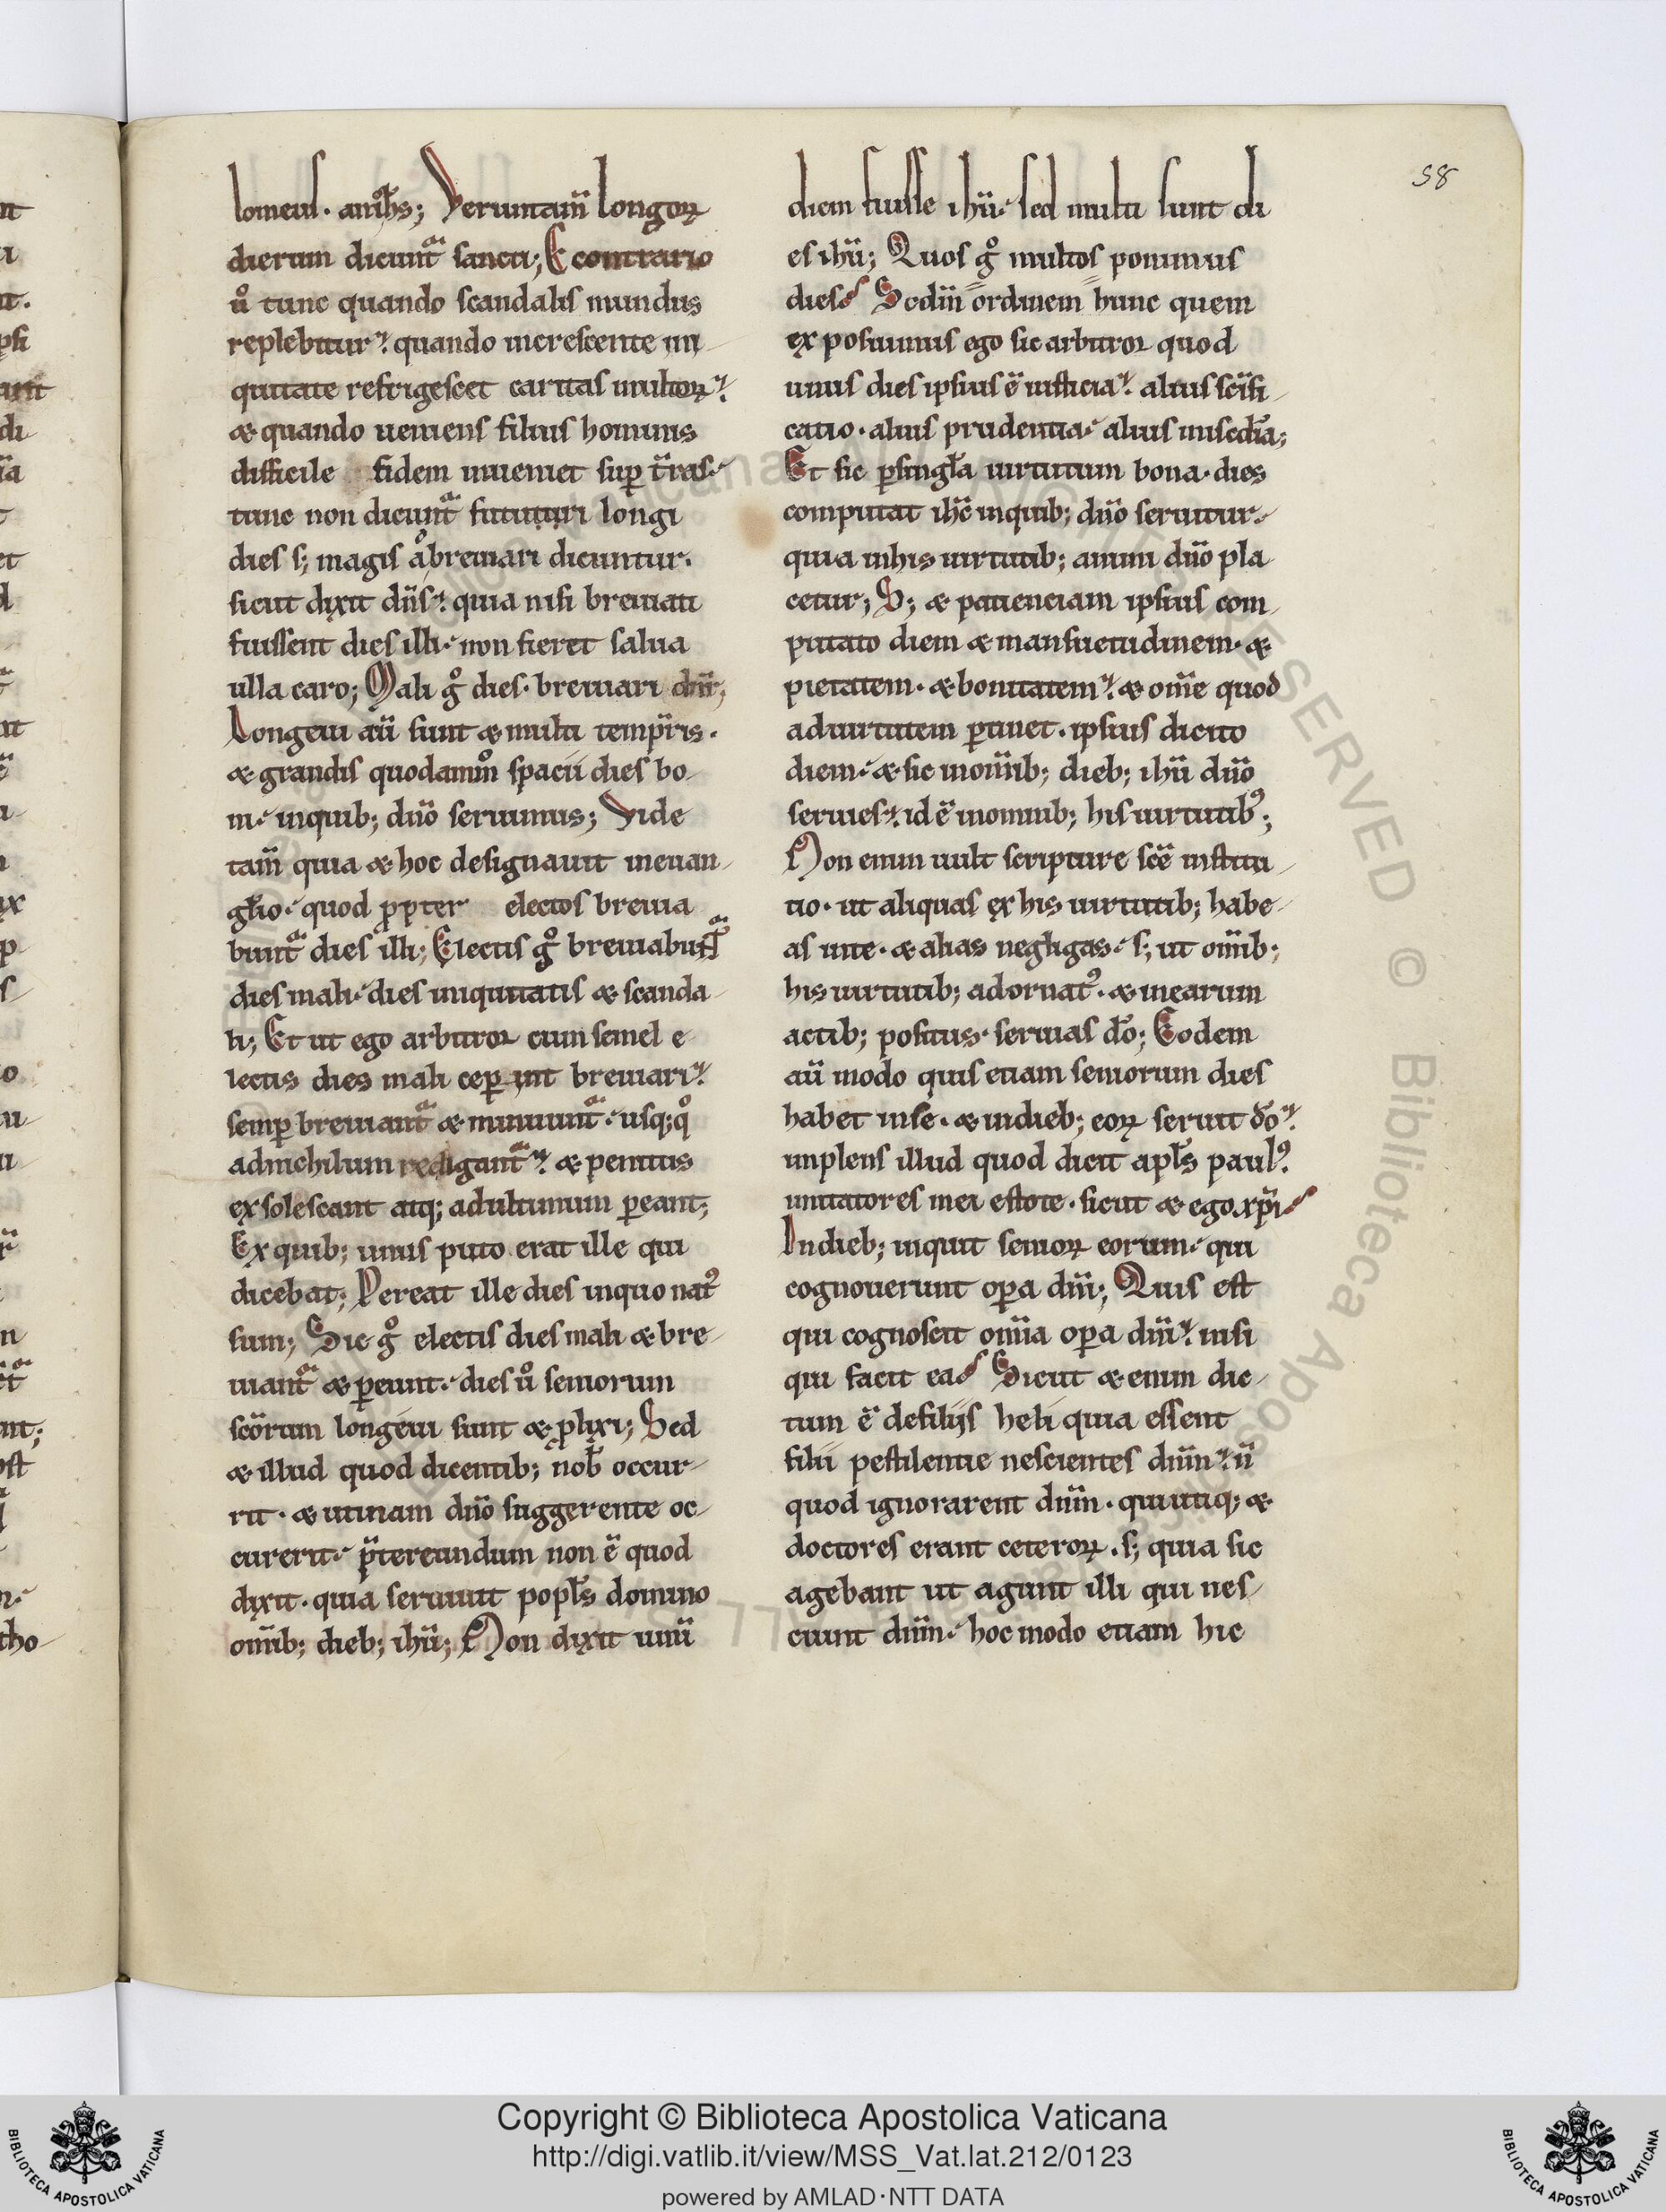 58
lomeus. anı̄hs; Verumtam̄ longoꝝ
dierum dicunt᷒ᷓ sancti; E contrario
ů tunc quando scandalis mundus
replebitur. quando increscente ini
quitate refrigescet caritas multoꝝ.
& quando ueniens filius hominis
difficile fidem inueniet suꝑ t̄ras.
tunc non dicunt᷒ᷓ fututuri longi
dies s; magis abreuiari dicuntur.
sicut dixit dn̄s. quia nisi breuiati
fuissent dies illi. non fieret salua
ulla caro; Mali gͦ dies. breuiari dn̄r;
Longeui aū sunt & multi temp̄ris.
& grandis quodammͦ spacii dies bo
ni. in quib; dn̄o seruimus; Vide
tam̄ quia & hoc designauit in euan
glīo. quod ꝓpter electos breuia
bunt᷒ᷓ dies illi; Electis gͦ breuiabunt᷒ᷓ
dies mali. dies iniquitatis & scanda
li; Et ut ego arbitror cum semel e
lectis dies mali ceꝑint breuiari.
semꝑ breuiant᷒ᷓ & minuunt᷒ᷓ. usq; qͦ
ad nichilum redigant᷒ᷓ. & penitus
exsolescant atq; ad ultimum ꝑeant;
Ex quib; unus puto erat ille qui
dicebat; Pereat ille dies in quo natꝰ
sum; Sic gͦ electis dies mali & bre
uiant᷒ᷓ & ꝑeunt. dies ů seniorum
scōrum longeui sunt & ꝓlixi; Sed
& illud quod dicentib; nob̄ occur
rit. & utinam dn̄o suggerente oc
curerit. p̄tereundum non ē quod
dixit. quia seruiuit popl̄s domino
om̄ib; dieb; ihū; Non dixit unū
diem fuisse ihū. sed multi sunt di
es ihū; Quos gͦ multos ponimus
dies. Scd̄m ordinem hunc quem
exposuimus ego sic arbitror quod
unus dies ipsius ē iusticia. alius sc̄ifi
catio. alius prudentia. alius misc̄dia;
Et sic ꝑ singl̄a uirtutum bona. dies
computat ihc̄ in quib; dn̄o seruitur.
quia in his uirtutib; animi dn̄o pla
cetur; S; & patienciam ipsius com
putato diem & mansuetudinem. &
pietatem. & bonitatem. & om̄e quod
ad uirtutem ꝑtinet. ipsius dicito
diem. & sic in om̄ib; dieb; ihū dn̄o
seruies. id ē in omnib; his uirtutibꝰ;
Non enim uult scripture sc̄e institu
tio. ut aliquas ex his uirtutib; habe
as in te. & alias negligas. s; ut om̄ib;
his uirtutib; adornatꝰ. & in earum
actib; positus. seruias do̅; Eodem
aū modo quis etiam seniorum dies
habet in se. & in dieb; eoꝝ seruit do̅.
implens illud quod dicit apl̄s paulꝰ.
imitatores mei estote. sicut & ego xp̄i.
In dieb; inquit senioꝝ eorum. qui
cognouerunt oꝑa dn̄i; Quis est
qui cognoscit om̄ia oꝑa dn̄i. nisi
qui facit ea. Sicut & enim dic
tum ē de filiis heli quia essent
filii pestilentie nescientes dn̄m. ū
quod ignorarent dn̄m. qui utiq; &
doctores erant ceteroꝝ. s; quia sic
agebant ut agunt illi qui nes
ciunt dn̄m. hoc modo etiam hic
Copyright © Biblioteca Apostolica Vaticana
http://digi.vatlib.it/view/MSS_Vat.lat.212/0123
powered by AMLAD·NTT DATA
BIBLIOTECA APOSTOLICA VATICANA
BIBLIOTECA APOSTOLICA VATICANA